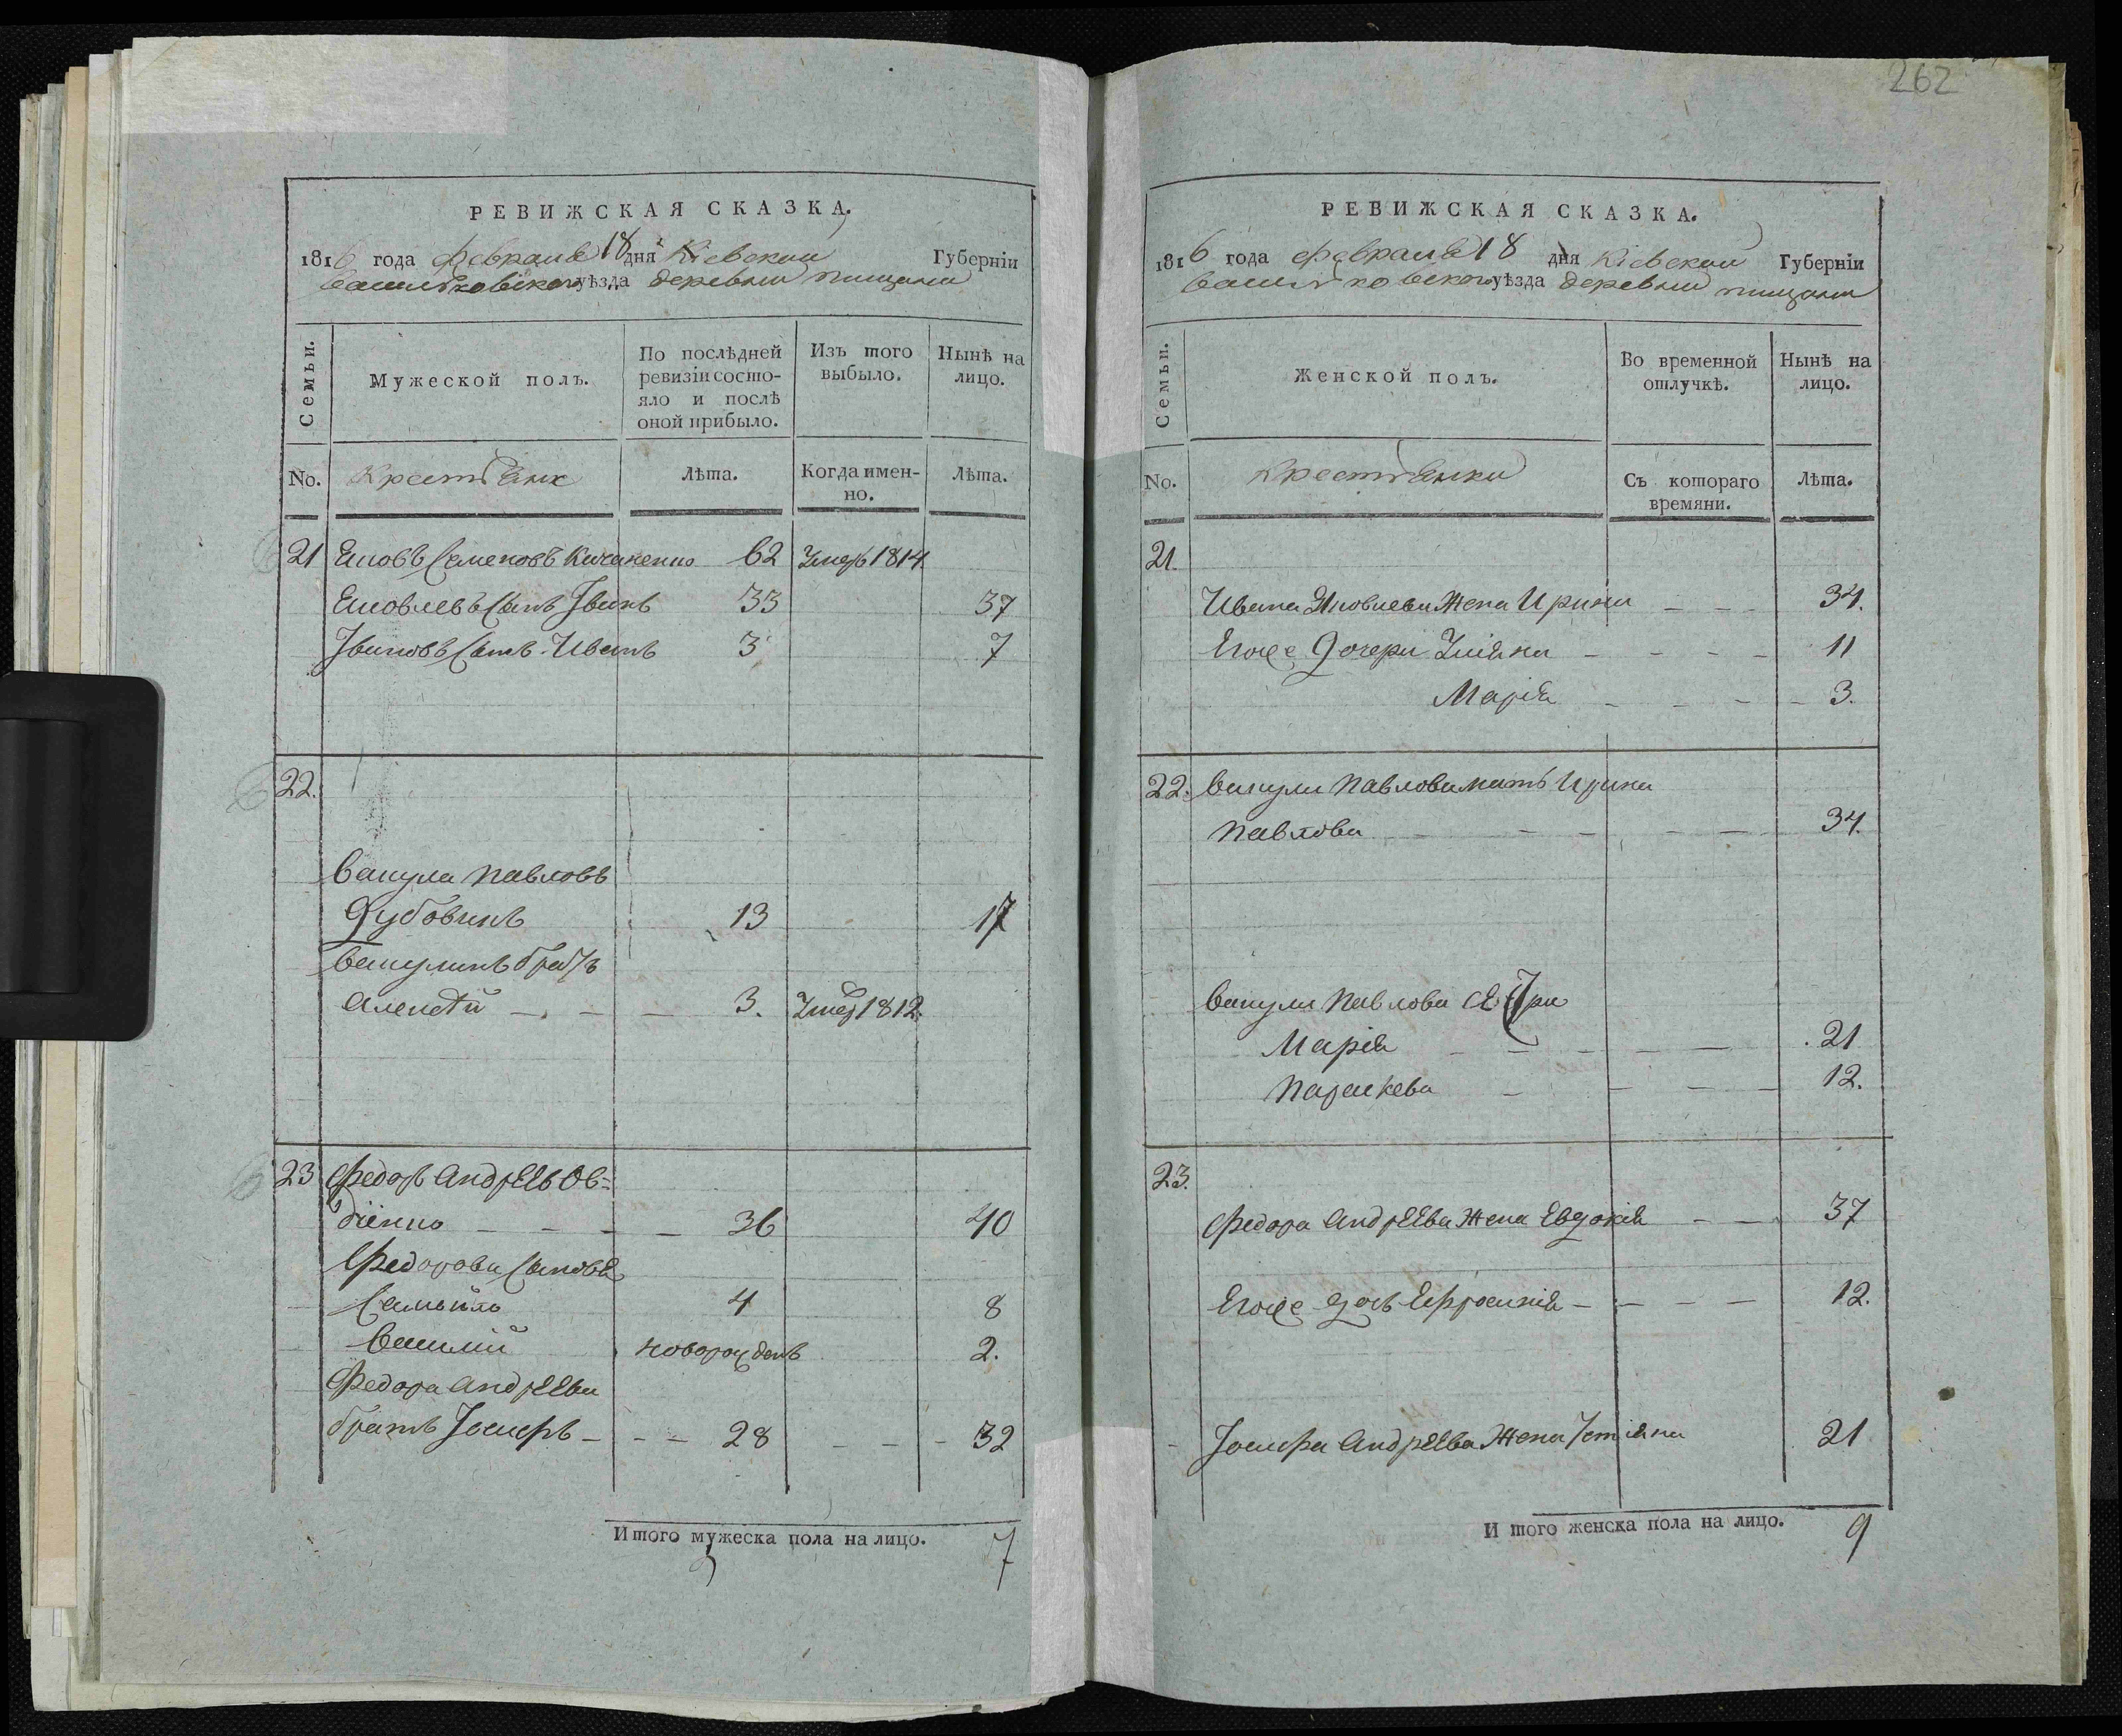 262
РЕВИЖСКАЯ СКАЗКА.
1816 года февраля 18 дня Кіевской Губерніи
васильковского уѣзда деревни пищали
Семьи.
Мужеской полъ.
По послѣдней ревизіи состо-
яло и послѣ
оной прибыло.
Изъ того
выбыло.
Нынѣ на
лицо.
No.
Крестьянъ
лѣта.
Когда имен-
но.
лѣта.
21 Яковъ Семеновъ 62 Умеръ 1814
Яковлевъ Сынъ Іванъ 33 37
Івановъ Сынъ Иванъ 3 7
22.
вакула Павловъ
Дубовикъ 13 17
вакулинъ братъ
алексѣй 3. Умеръ 1812.
23 Федоръ Андрѣевъ Ов=
дѣенко 36 40
Федорови Синовя
Самуилъ 4 8
василій новорожденъ 2.
Федора Андрѣева
братъ Іосифъ 28 32
Итого мужеска пола на лицо. 7
РЕВИЖСКАЯ СКАЗКА.
1816 года февраля 18 дня Кіевской Губерніи
васильковского уѣзда деревни пищали
Семьи.
Женской полъ.
Во временной
отлучкѣ.
Нынѣ на
лицо.
No.
Крестьянки
Съ котораго
времяни.
лѣта.
21.
Ивана Яковлева Жена Ирина 34.
Егоже Дочери Уліяна 11
Марія 3.
22. вакули Павлова мать Ирина
Павлова 34.
вакули Павлова сестри
Марія 21
Параскева 12.
23.
Федора Андрѣева Жена Евдокія 37
Егоже дочь Ефросинія 12.
Іосифа Андрѣева Жена Устіяна 21
И того женска пола на лицо. 9